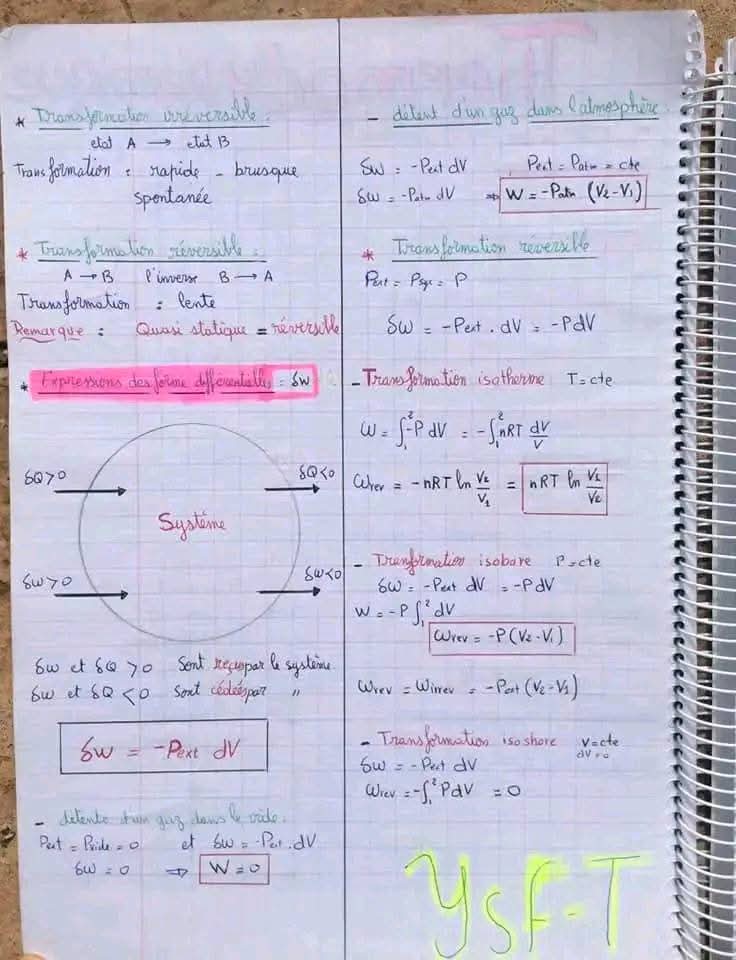 * Transformation irréversible :
etat A → etat B
Transformation : rapide - brusque
spontanée
* Transformation réversible :
A → B l'inverse B → A
Transformation : lente
Remarque : Quasi statique = réversible
* Expressions des forme différentielles : δW
δQ>0
δQ<0
Système
δW>0
δW<0
δW et δQ > 0 sont reçus par le système
δW et δQ < 0 sont cédées par "
δW = -Pext dV
- détente d'un gaz dans le vide.
Pext = Pvide = 0 et δW = -Pext.dV
δW = 0 ⇒ W = 0
- détent d'un gaz dans l'atmosphère.
δW = -Pext dV , Pext = Patm = cte
δW = -Patm dV ⇒ W = -Patm (V2-V1)
* Transformation réversible
Pext = Psys = P
δW = -Pext . dV = -PdV
- Transformation isotherme T=cte
W = ∫₁² -P dV = -∫₁² nRT dV/V
Wrev = -nRT ln V2/V1 = nRT ln V1/V2
- Tranformation isobare P=cte
δW = -Pext dV = -PdV
W = -P∫₁² dV
Wrev = -P(V2-V1)
Wrev = Wirrev = -Pext (V2-V1)
- Transformation isoshore V=cte
dV=0
δW = -Pext dV
Wrev = -∫₁² PdV = 0
YSF-T